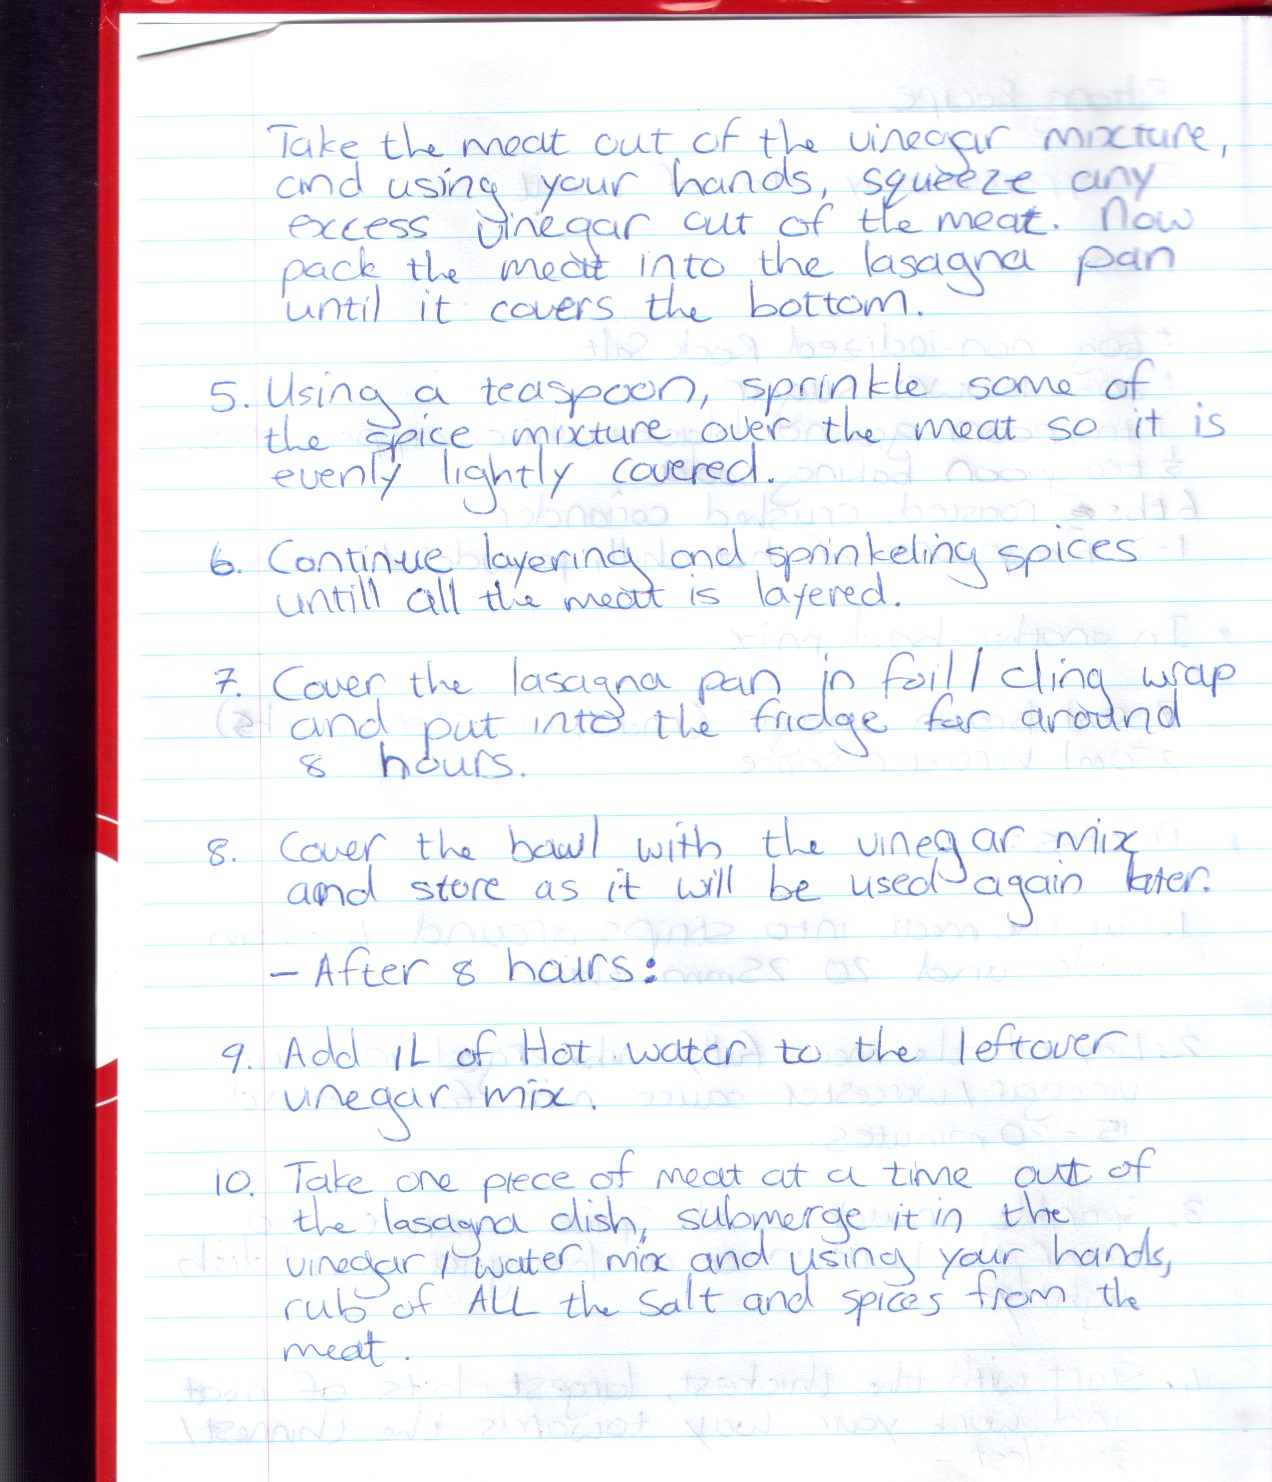 Take the meat out of the vinegar mixture,
and using your hands, squeeze any
excess vinegar out of the meat. Now
pack the meat into the lasagna pan
until it covers the bottom.
5. Using a teaspoon, sprinkle some of
the spice mixture over the meat so it is
evenly lightly covered.
6. Continue layering and sprinkeling spices
untill all the meat is layered.
7. Cover the lasagna pan in foil / cling wrap
and put into the fridge for around
8 hours.
8. Cover the bowl with the vinegar mix
and store as it will be used again later.
- After 8 hours:
9. Add 1L of Hot water to the leftover
vinegar mix.
10. Take one piece of meat at a time out of
the lasagna dish, submerge it in the
vinegar / water mix and using your hands,
rub of ALL the salt and spices from the
meat.